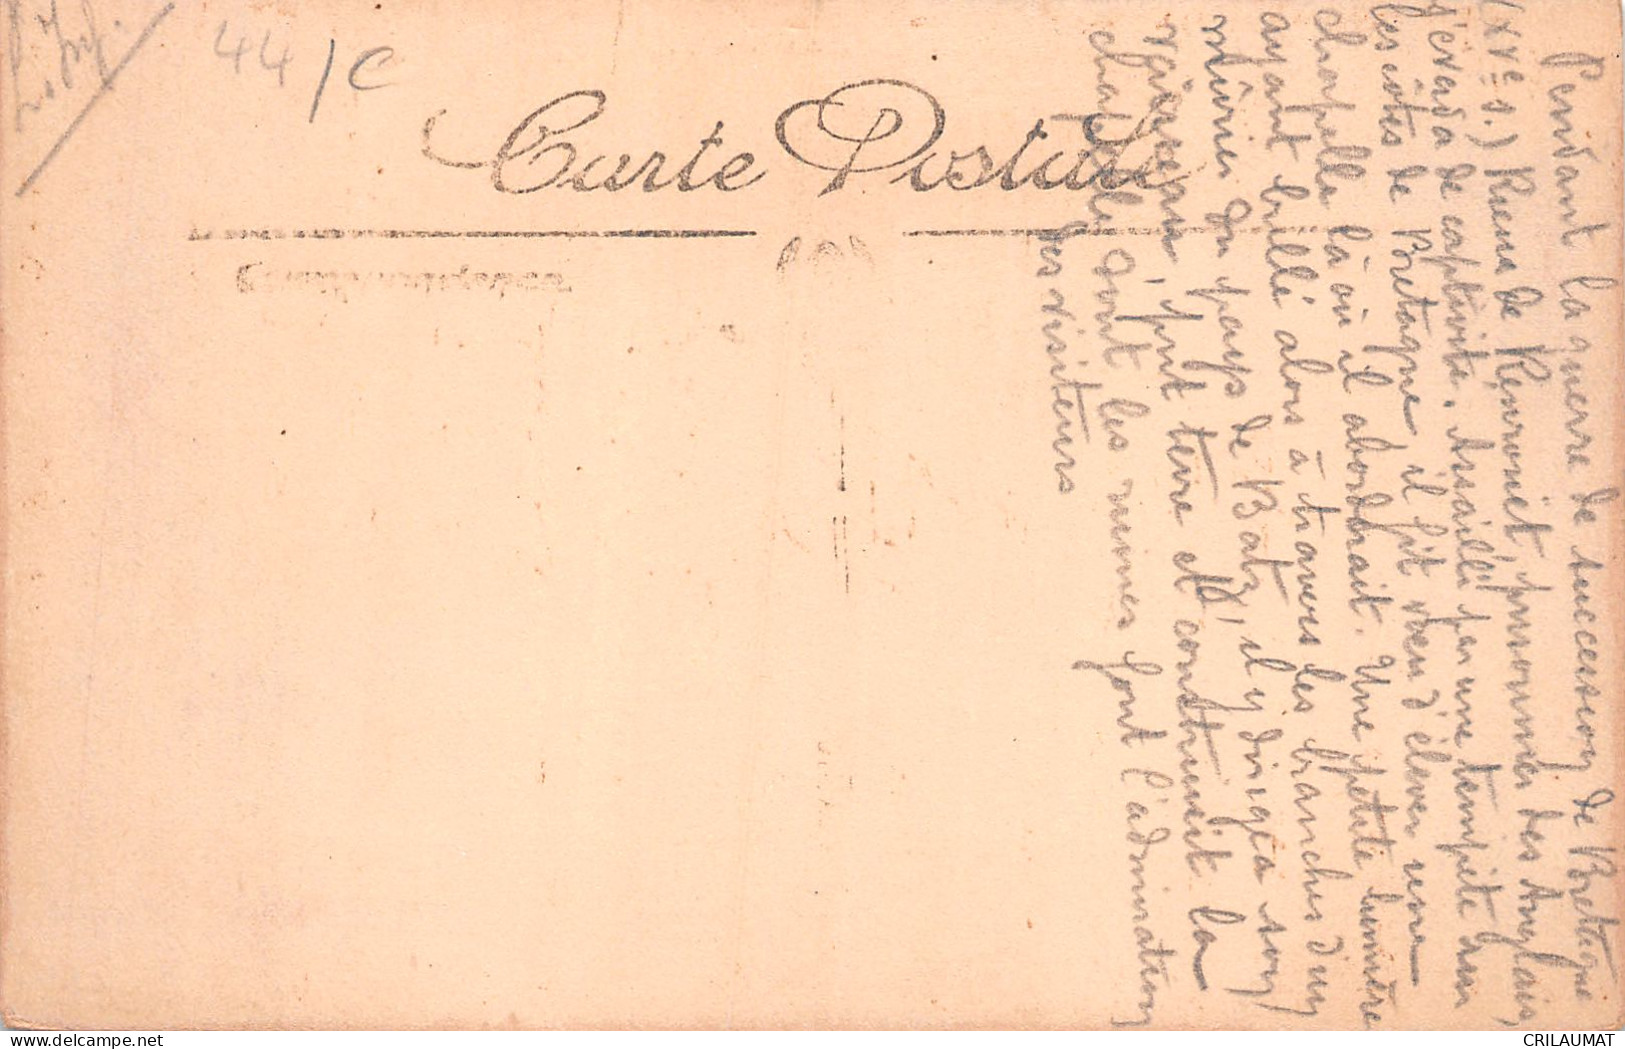 44/C
Carte Postale
Correspondance
Pendant la guerre de succession de Bretagne
(XVe s.) Rieuc de Kénrouët, prisonnier des Anglais,
s'évada de captivité. Assailli par une tempête sur
les côtes de Bretagne, il fit voeu d'élever une
chapelle là où il aborderait. Une petite lumière
ayant brillé alors à travers les branches d'un
mûrier du pays de Batz, il y dirigea son
vaisseau, prit terre et construisit la
chapelle dont les ruines font l'admiration
des visiteurs
CRILAUMAT